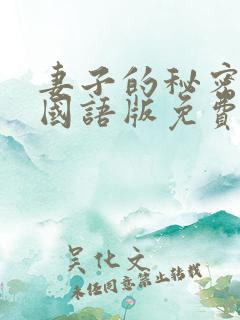 妻子的秘密
國語版免費
吴化文
未经同意禁止转载